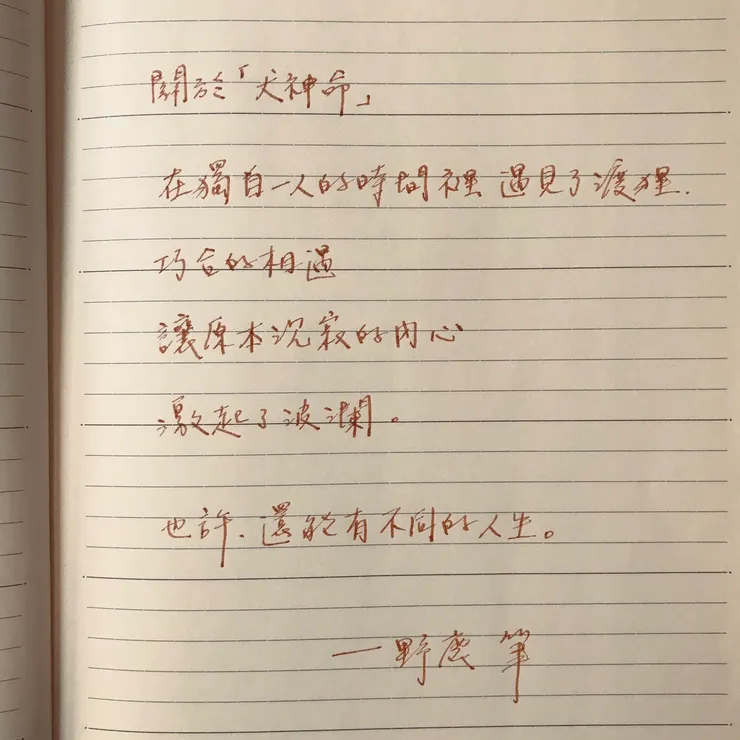 關於「犬神命」
在獨自一人的時間裡 遇見了渡狸.
巧合的相遇
讓原本沉寂的內心
激起了波瀾。
也許、還能有不同的人生。
—野鹿 筆